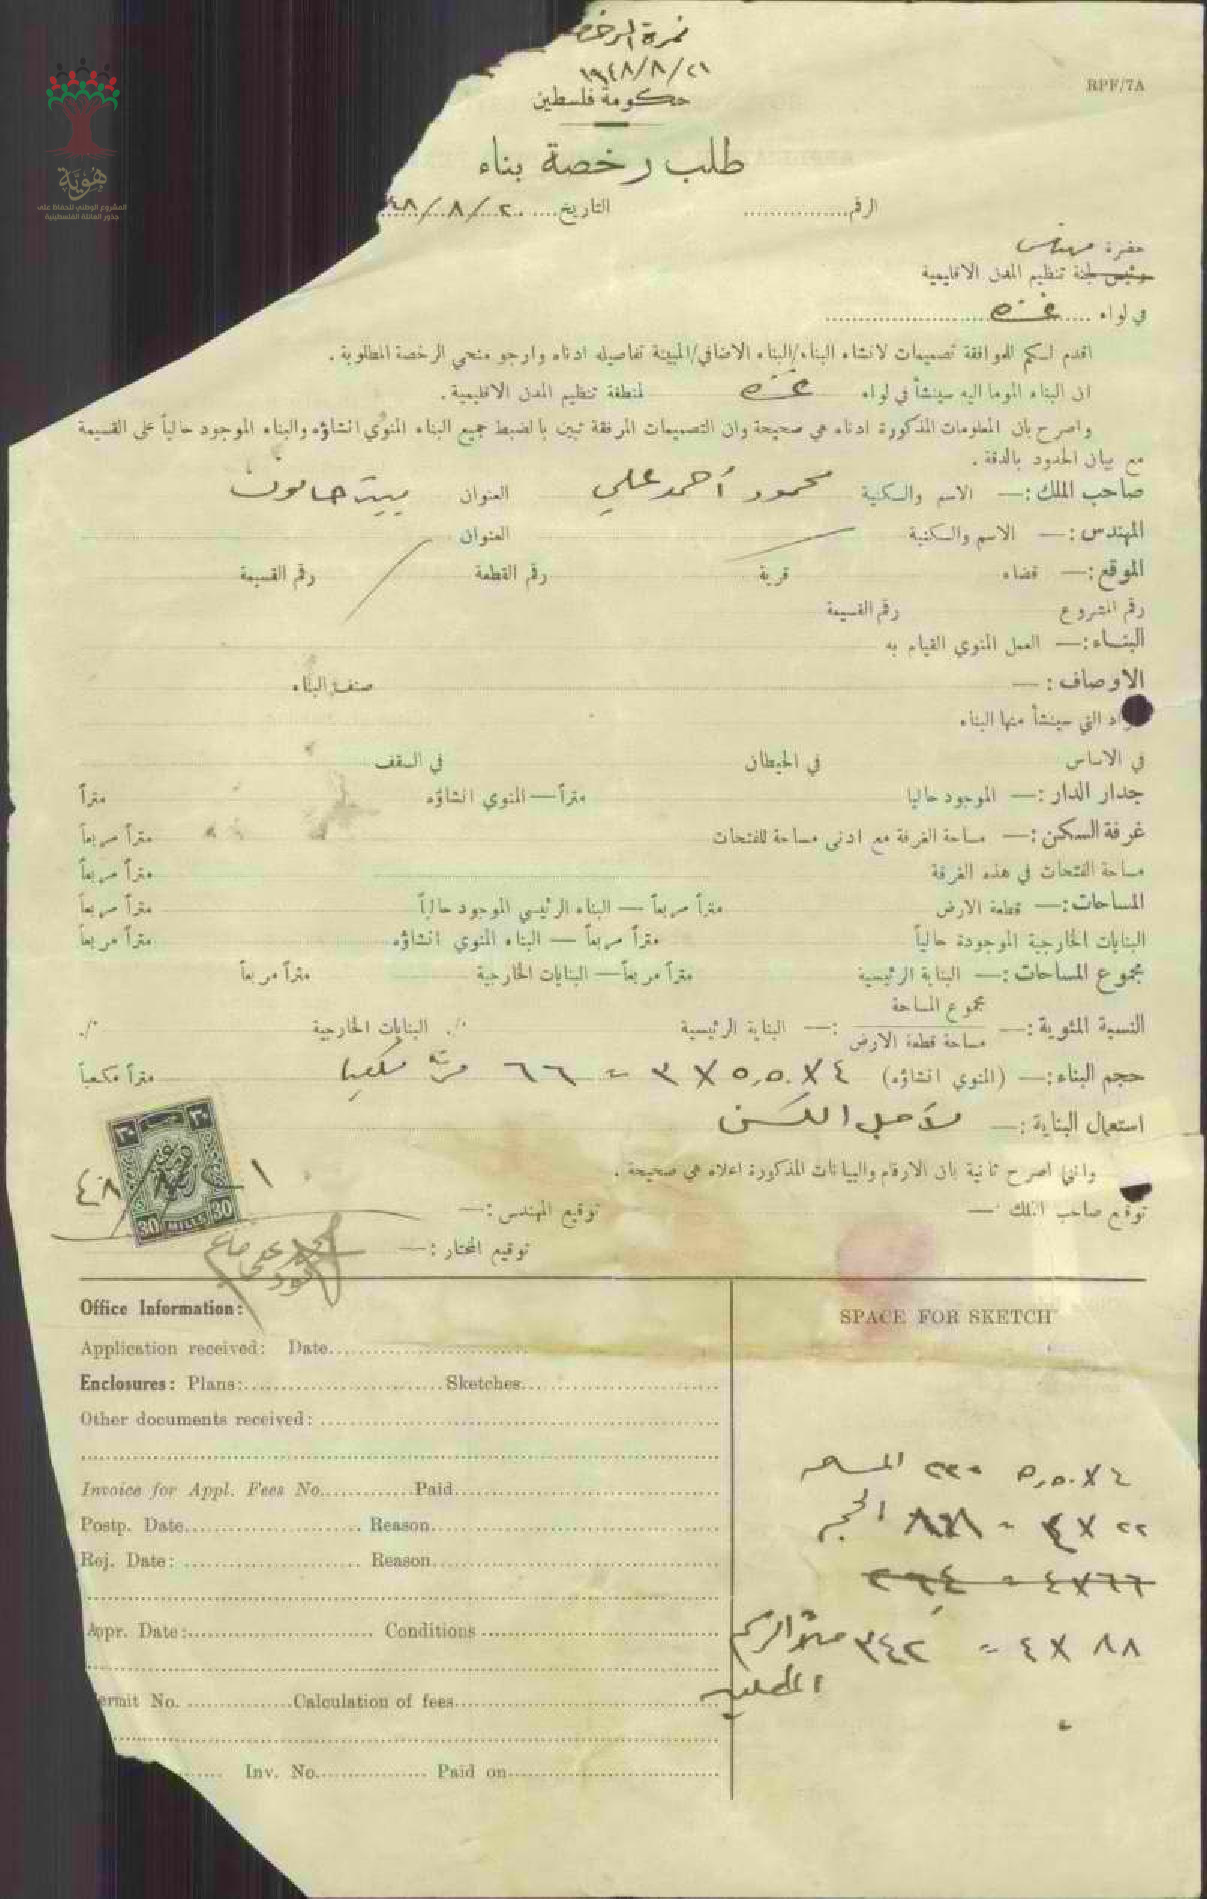 نمرة الرخص
١٩٤٨/٨/٢١
حكومة فلسطين
RPF/7A
طلب رخصة بناء
الرقم................ التاريخ.... ٢٠/٨/٤٨
حضرة مهندس
رئيس لجنة تنظيم المدن الاقليمية
في لواء ..... غزه
اقدم لكم للموافقة تصميمات لانشاء البناء/البناء الاضافي/المبينة تفاصيله ادناه وارجو منحي الرخصة المطلوبة .
ان البناء الموما اليه سينشأ في لواء غزه لمنطقة تنظيم المدن الاقليمية .
واصرح بان المعلومات المذكورة ادناه هي صحيحة وان التصميمات المرفقة تبين بالضبط جميع البناء المنوي انشاؤه والبناء الموجود حالياً على القسيمة
مع بيان الحدود بالدقة .
صاحب الملك :— الاسم والكنية محمود أحمد علي العنوان بيت حانون
المهندس :— الاسم والكنية العنوان
الموقع :— قضاء قرية رقم القطعة رقم القسيمة
رقم المشروع رقم القسيمة
البناء :— العمل المنوي القيام به
الاوصاف :— صنف البناء
واد التي سينشأ منها البناء
في الاساس في الحيطان في السقف
جدار الدار :— الموجود حاليا متراً — المنوي انشاؤه متراً
غرفة السكن :— مساحة الغرفة مع ادنى مساحة للفتحات متراً مربعاً
مساحة الفتحات في هذه الغرفة متراً مربعاً
المساحات :— قطعة الارض متراً مربعاً — البناء الرئيسي الموجود حالياً متراً مربعاً
البنايات الخارجية الموجودة حالياً متراً مربعاً — البناء المنوي انشاؤه متراً مربعاً
مجموع المساحات :— البناية الرئيسية متراً مربعاً — البنايات الخارجية متراً مربعاً
النسبة المئوية :— مجموع المساحة
مساحة قطعة الارض :— البناية الرئيسية ./. البنايات الخارجية ./.
حجم البناء :— (المنوي انشاؤه) ٤ X ٥,٥٠ X ٣ = ٦٦ متراً مكعباً
استعمال البناية :— لاجل السكن
وانني اصرح ثانية بان الارقام والبيانات المذكورة اعلاه هي صحيحة .
٣٠ ٣٠
30 MILLS 30
٢١/٨/٤٨
توقيع صاحب الملك — توقيع المهندس :—
توقيع المختار :—
Office Information:
Application received: Date
Enclosures: Plans: Sketches
Other documents received:
Invoice for Appl. Fees No. Paid
Postp. Date Reason
Rej. Date: Reason
Appr. Date: Conditions
ermit No. Calculation of fees
Inv. No. Paid on
SPACE FOR SKETCH
٤ X ٥,٥٠ = ٢٢ المساحه
٢٢ X ٤ = ٨٨ الحجم
٦٦ X ٤ = ٢٦٤
٨٨ X ٤ = ٣٤٢
هُوِيَّة
المشروع الوطني للحفاظ على
جذور العائلة الفلسطينية